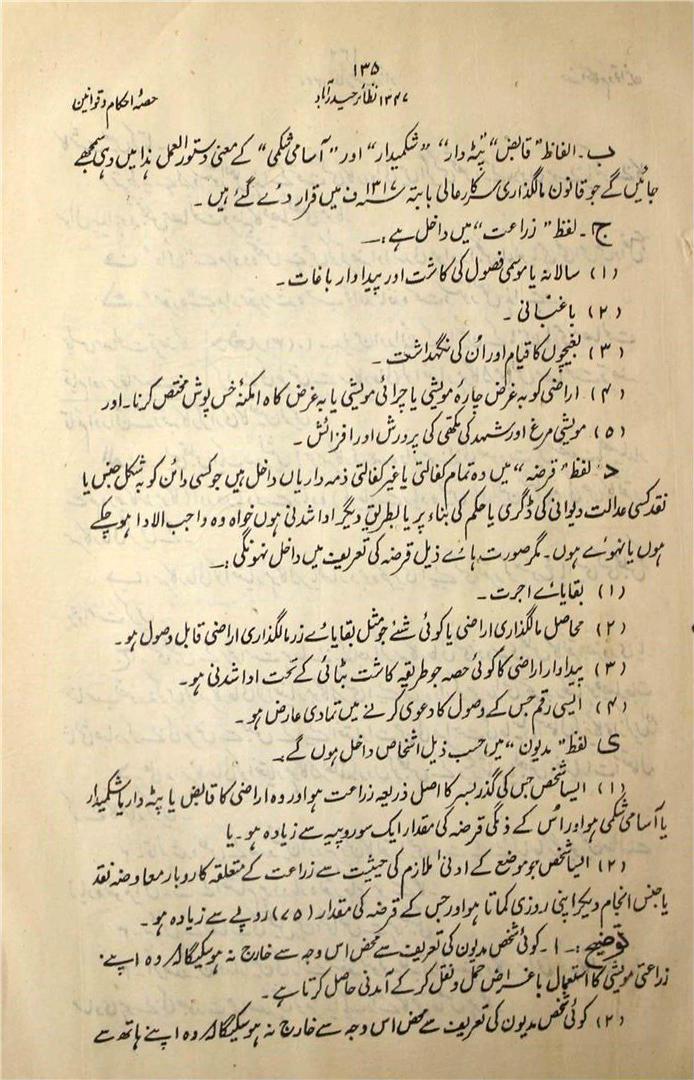 ۱۳۵
۱۳۴۷ نظائر حیدرآباد
حصۂ احکام و قوانین
ب۔ الفاظ "قابض" "پٹہ دار" "شکمیدار" اور "آسامی شکمی" کے معنی دستور العمل ہذا میں وہی سمجھے
جائیں گے جو قانون مالگذاری سرکار عالی بابتہ ۱۳۱۷ ف میں قرار دئے گئے ہیں ۔
ج۔ لفظ "زراعت" میں داخل ہے :۔
(۱) سالانہ یا موسمی فصول کی کاشت اور پیداوار باغات ۔
(۲) باغبانی ۔
(۳) بغیچوں کا قیام اور اُن کی نگہداشت ۔
(۴) اراضی کو بہ غرض چارۂ مویشی یا چرائی مویشی یا بہ غرض کاہ امکنۂ خس پوش مختص کرنا۔ اور
(۵) مویشی مرغ اور شہد کی مکھی کی پرورش اور افزائش ۔
د۔ لفظ "قرضہ" میں وہ تمام کفالتی یا غیر کفالتی ذمہ داریاں داخل ہیں جو کسی دائن کو بہ شکل جنس یا
نقد کسی عدالت دیوانی کی ڈگری یا حکم کی بناء پر یا بطریق دیگر ادا شدنی ہوں خواہ وہ واجب الادا ہو چکے
ہوں یا نہوئے ہوں۔ مگر صورت ہائے ذیل قرضہ کی تعریف میں داخل نہونگی :۔
(۱) بقایائے اجرت ۔
(۲) محاصل مالگذاری اراضی یا کوئی شئے جو مثل بقایائے زر مالگذاری اراضی قابل وصول ہو۔
(۳) پیداوار اراضی کا کوئی حصہ جو طریقہ کاشت بٹائی کے تحت ادا شدنی ہو۔
(۴) ایسی رقم جس کے وصول کا دعوی کرنے میں تمادی عارض ہو ۔
ی لفظ "مدیون" میں حسب ذیل اشخاص داخل ہوں گے :۔
(۱) ایسا شخص جس کی گذر بسر کا اصل ذریعہ زراعت ہو اور وہ اراضی کا قابض یا پٹہ دار یا شکمیدار
یا آسامی شکمی ہو اور اُس کے ذمگی قرضہ کی مقدار ایک سو روپیہ سے زیادہ ہو ۔ یا
(۲) ایسا شخص جو موضع کے ادنیٰ ملازم کی حیثیت سے زراعت کے متعلقہ کاروبار معاوضہ نقد
یا جنس انجام دیکر اپنی روزی کماتا ہو اور جس کے قرضہ کی مقدار (۷۵) روپے سے زیادہ ہو ۔
توضیح :۔ ۱۔ کوئی شخص مدیون کی تعریف سے محض اس وجہ سے خارج نہ ہو سکیگا کہ وہ اپنے
زراعتی مویشی کا استعمال باغراض حمل و نقل کر کے آمدنی حاصل کرتا ہے ۔
(۲) کوئی شخص مدیون کی تعریف سے محض اس وجہ سے خارج نہ ہو سکیگا کہ وہ اپنے ہاتھ سے